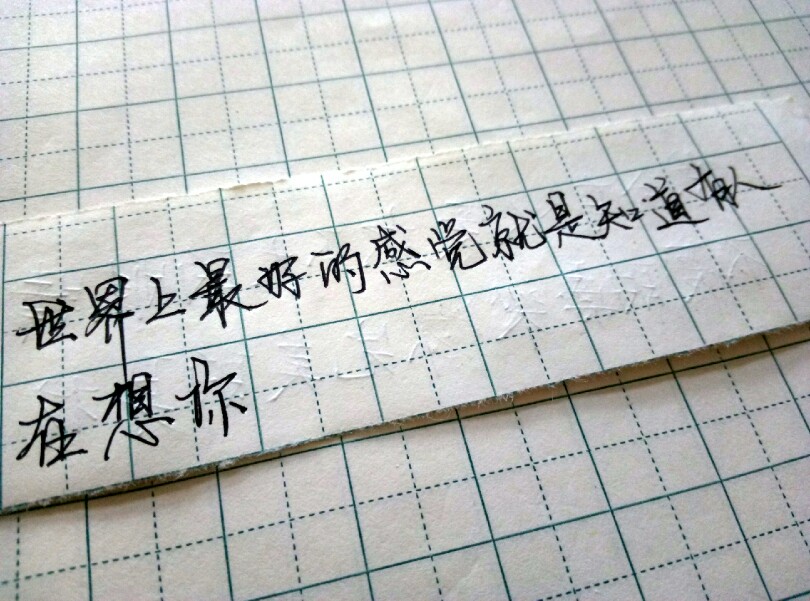 世界上最好的感觉就是知道有人
在想你